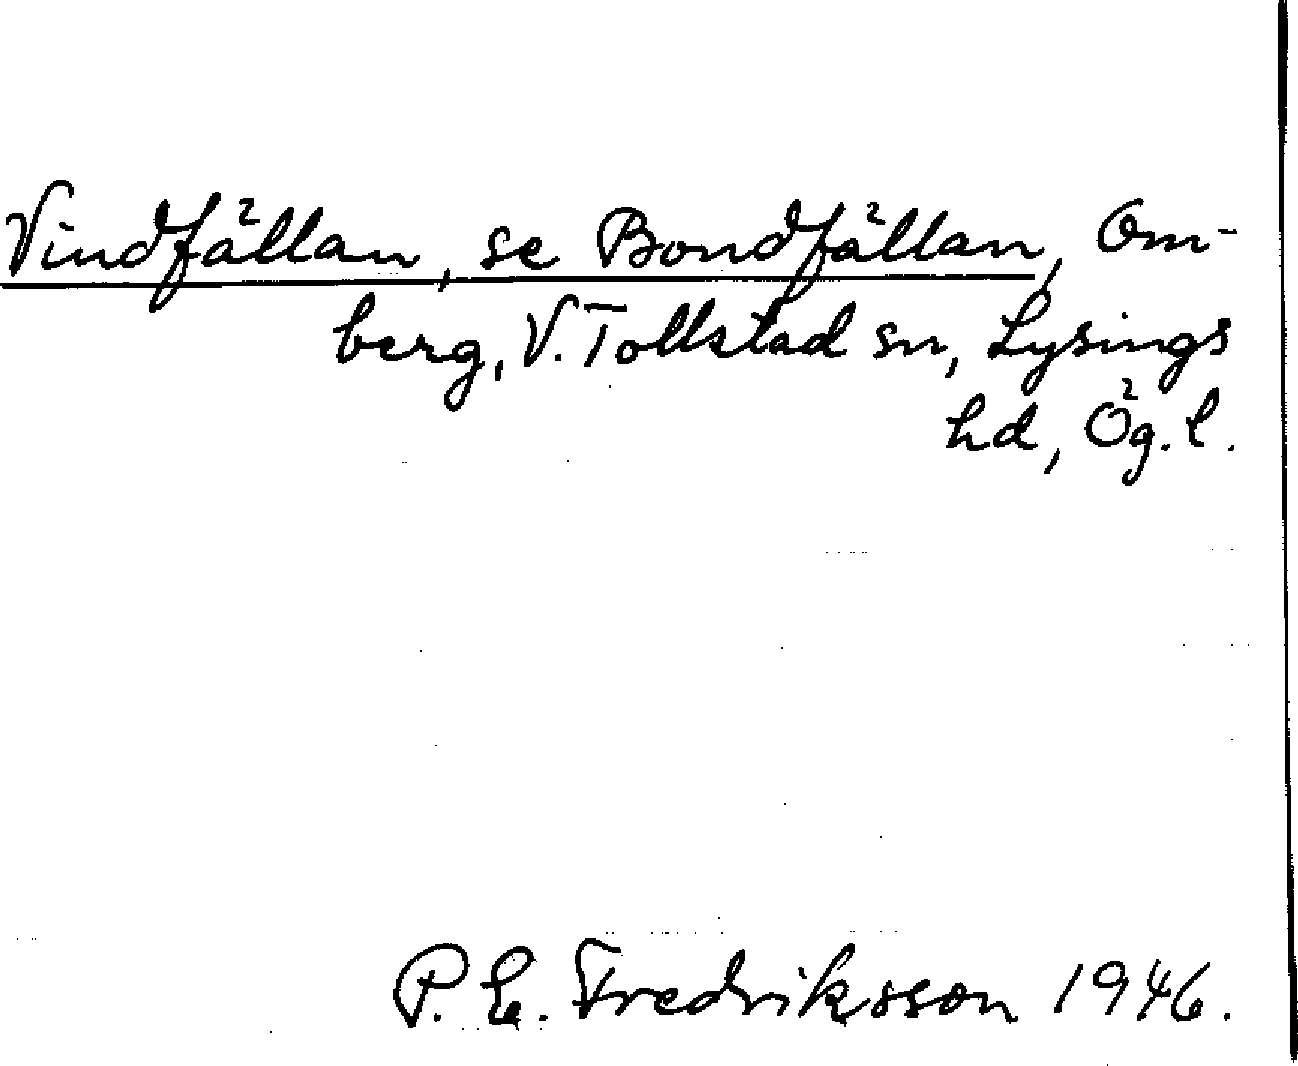 Vindfällan, se Bondfällan, Om-
berg, V. Tollstad sn, Lysings
hd, Ög. l.
P. E. Fredriksson 1946.